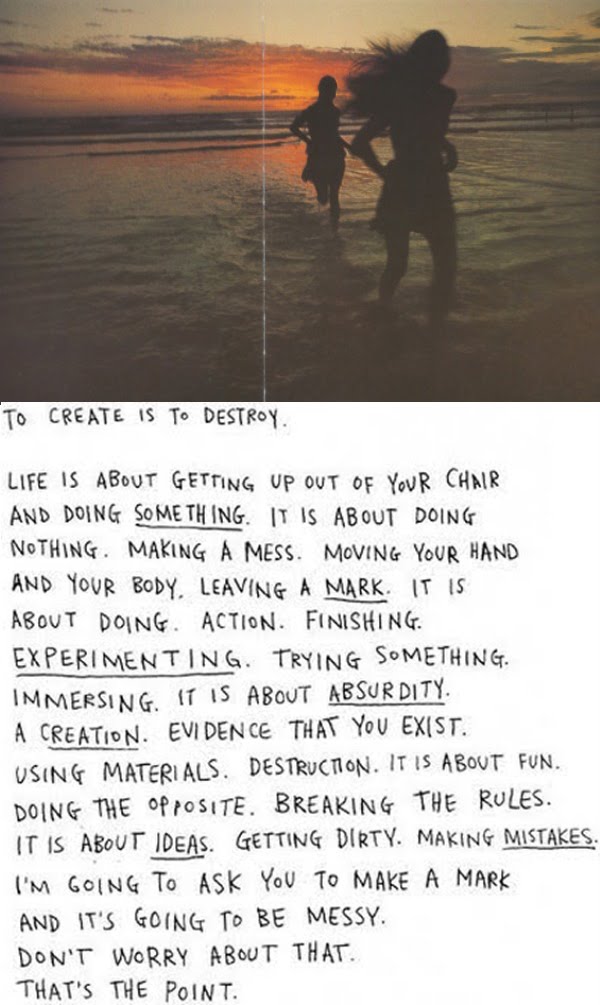 TO CREATE IS TO DESTROY.
LIFE IS ABOUT GETTING UP OUT OF YOUR CHAIR
AND DOING SOMETHING. IT IS ABOUT DOING
NOTHING. MAKING A MESS. MOVING YOUR HAND
AND YOUR BODY. LEAVING A MARK. IT IS
ABOUT DOING. ACTION. FINISHING.
EXPERIMENTING. TRYING SOMETHING.
IMMERSING. IT IS ABOUT ABSURDITY.
A CREATION. EVIDENCE THAT YOU EXIST.
USING MATERIALS. DESTRUCTION. IT IS ABOUT FUN.
DOING THE OPPOSITE. BREAKING THE RULES.
IT IS ABOUT IDEAS. GETTING DIRTY. MAKING MISTAKES.
I'M GOING TO ASK YOU TO MAKE A MARK
AND IT'S GOING TO BE MESSY.
DON'T WORRY ABOUT THAT.
THAT'S THE POINT.